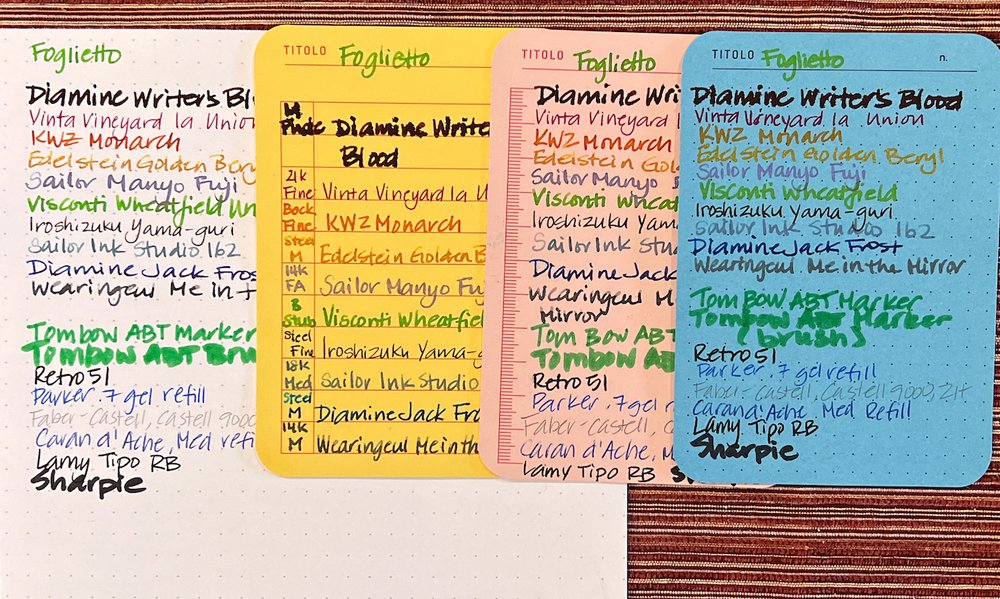 Foglietto
Diamine Writer's Bl
Vinta Vineyard la Union
KWZ Monarch
Edelstein Golden Bery
Sailor Manyo Fuji
Visconti Wheatfield Un
Iroshizuku Yama-guri
Sailor Ink Studio 162
Diamine Jack Fros
Wearingeul Me in t
Tombow ABT Marker
Tombow ABT Bru
Retro 51
Parker .7 gel refill
Faber-Castell, Castell 9000
Caran d'Ache, Med refi
Lamy Tipo RB
Sharpie
TITOLO Foglietto
M Diamine Write
Blood
21k Fine Vinta Vineyard la U
Bock Fine KWZ Monarch
Steel M Edelstein Golden B
14k FA Sailor Manyo Fu
B Stub Visconti Wheatfiel
Steel Fine Iroshizuku Yama-g
18k Med Sailor Ink Studio
Steel M Diamine Jack Fro
14k M Wearingeul Me in th
TITOLO Foglietto
Diamine Wri
Vinta Vineyard l
KWZ Monarch
Edelstein Gol
Sailor Manyo
Visconti Wheat
Iroshizuku Yam
Sailor Ink Stu
Diamine Jack
Wearingeul M
Mirror
Tom Bow ABT
Tombow AB
Retro 51
Parker .7 gel r
Faber-Castell, C
Caran d'Ache, M
Lamy Tipo RB S
TITOLO Foglietto n.
Diamine Writer's Blood
Vinta Vineyard la Union
KWZ Monarch
Edelstein Golden Beryl
Sailor Manyo Fuji
Visconti Wheatfield
Iroshizuku Yama-guri
Sailor Ink Studio 162
Diamine Jack Frost
Wearingeul Me in the Mirror
Tom Bow ABT Marker
Tombow ABT Marker
(brush)
Retro 51
Parker .7 gel refill
Faber-Castell, Castell 9000, 2H
Caran d'Ache, Med Refill
Lamy Tipo RB
Sharpie